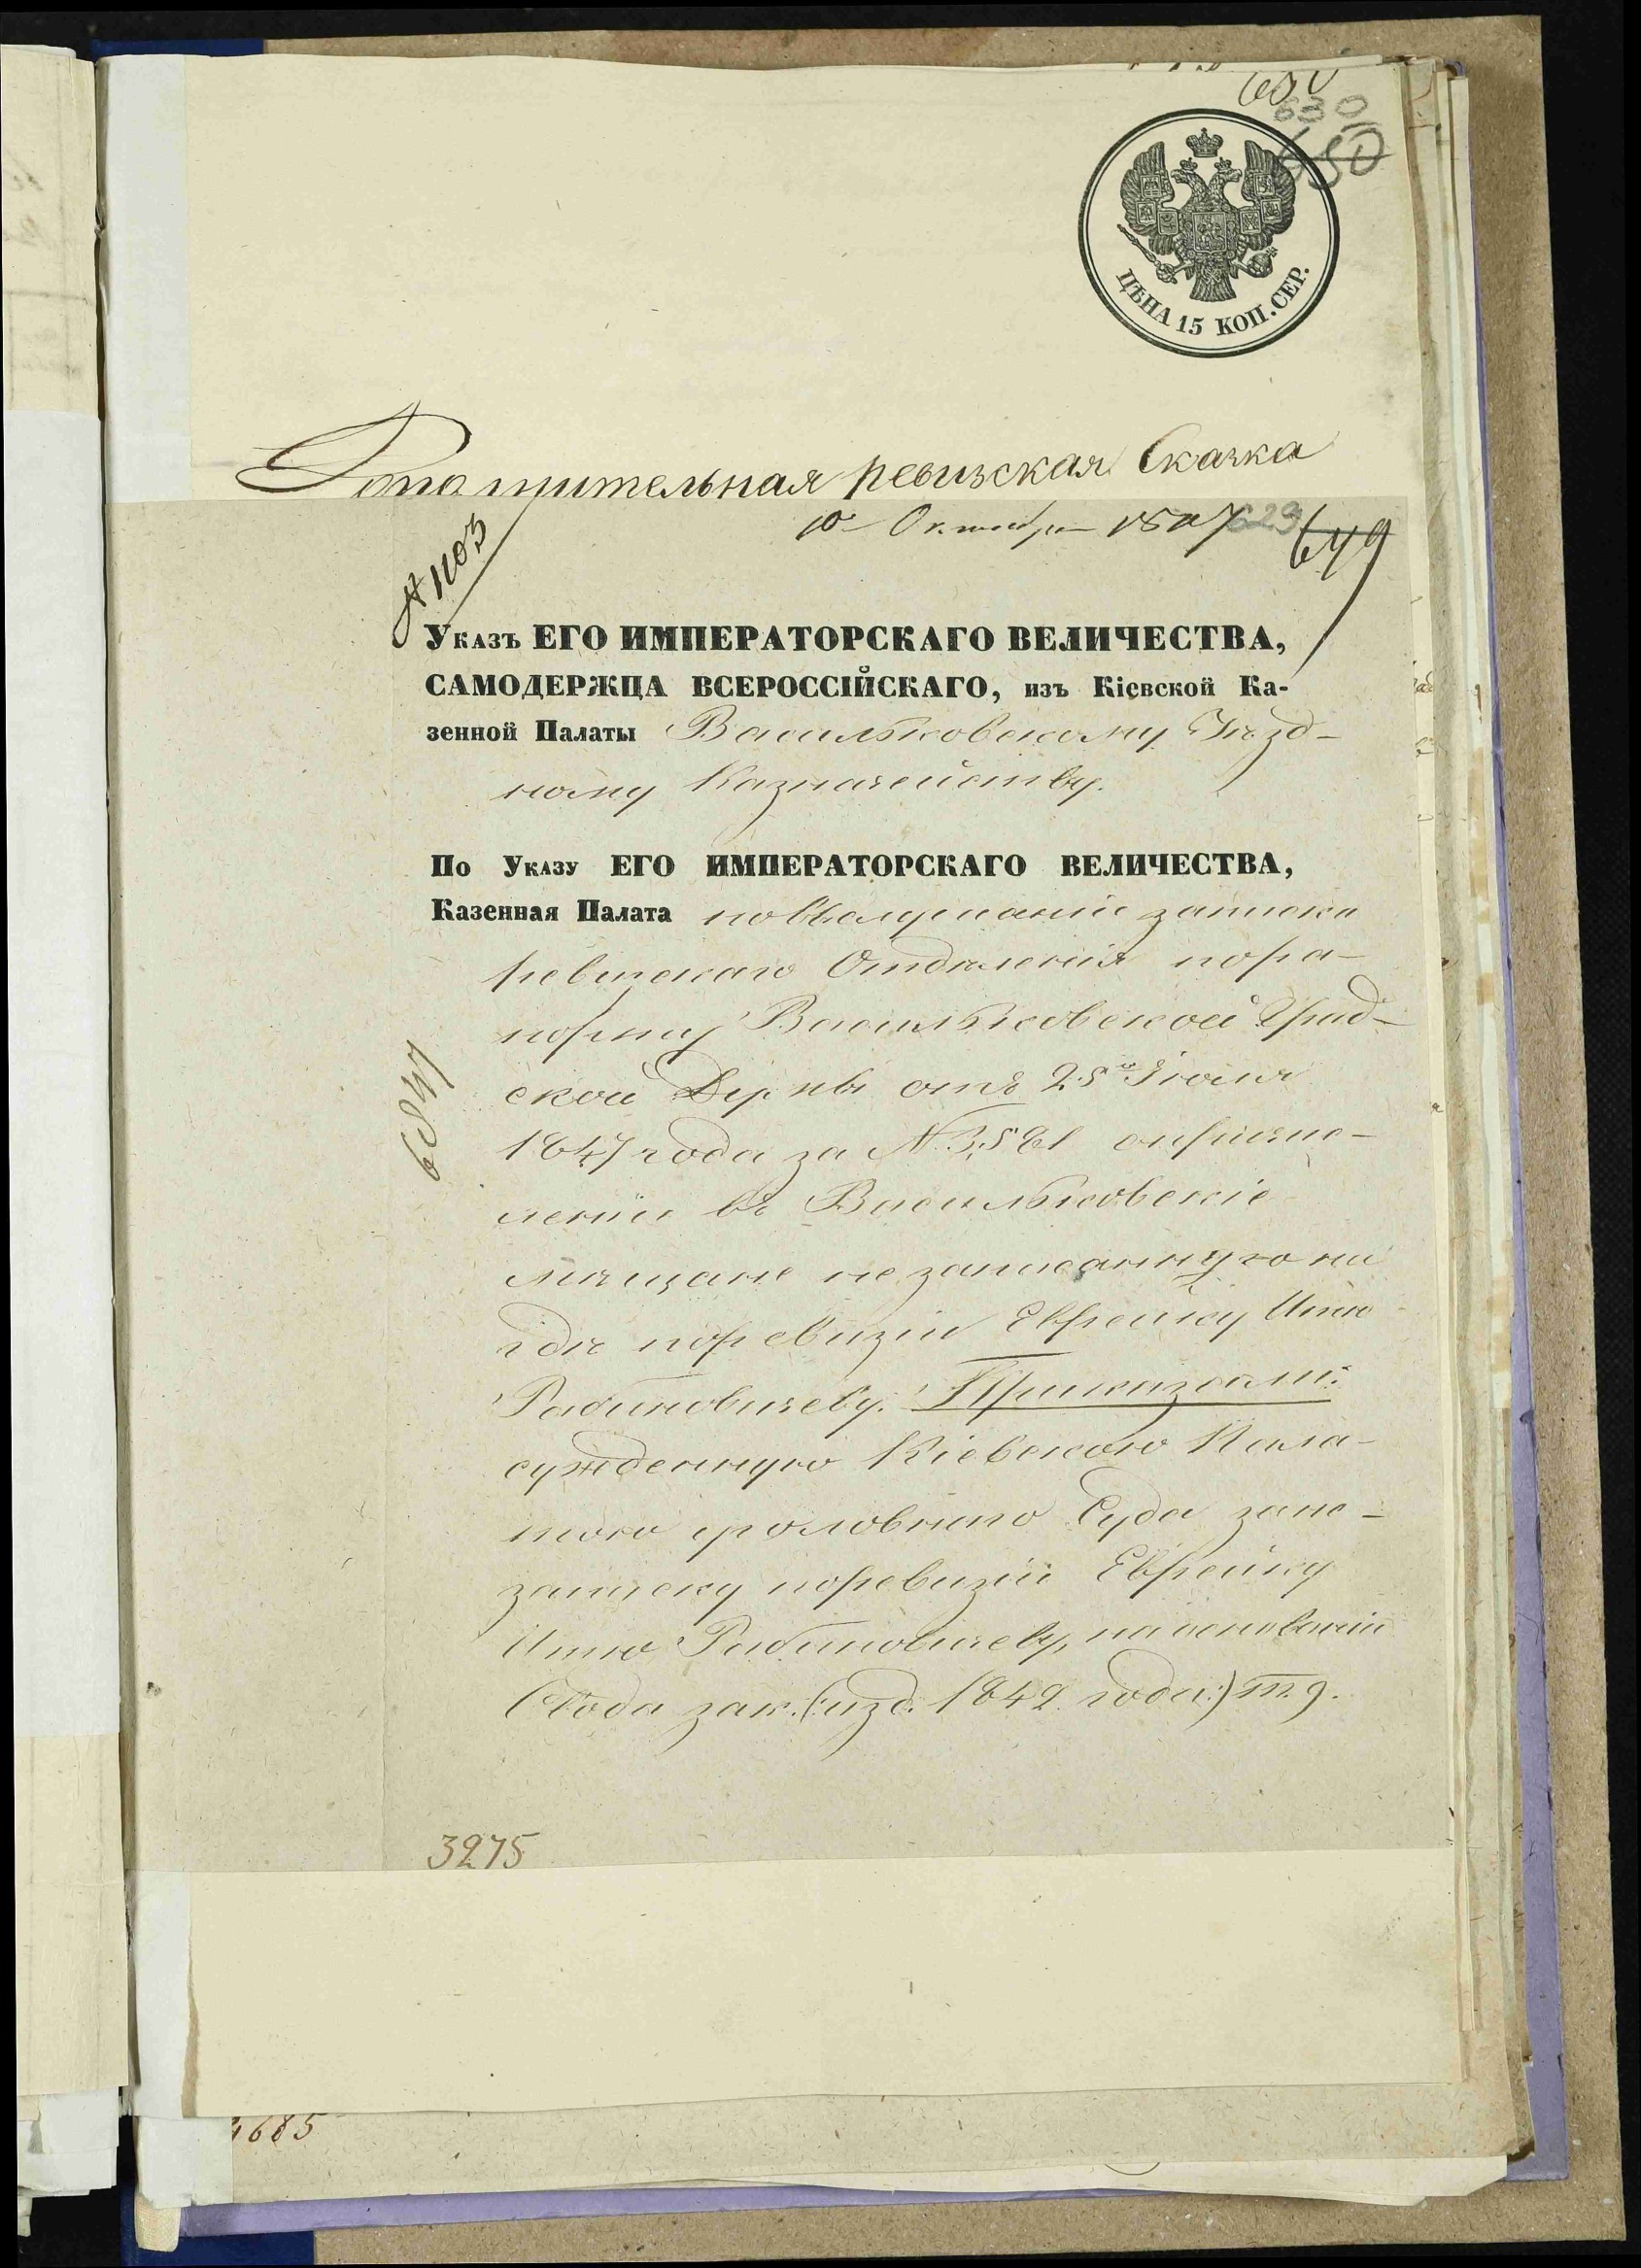 650
630
650
ЦѢНА 15 КОП. СЕР.
Дополнительная ревизская Сказка
10 Октября 1847 629 649
№ 1103
Указъ ЕГО ИМПЕРАТОРСКАГО ВЕЛИЧЕСТВА,
САМОДЕРЖЦА ВСЕРОССІЙСКАГО, изъ Кіевской Ка-
зенной Палаты Васильковскому Уѣзд-
ному Казначейству.
По Указу ЕГО ИМПЕРАТОРСКАГО ВЕЛИЧЕСТВА,
Казенная Палата по выслушаніи записки
ревизскаго Отдѣленія по ра-
порту Васильковской Град-
ской Думы отъ 25го Іюля
1847 года за № 3581 о причис-
леніи въ Васильковскіе
мѣщане не записанную ни
гдѣ по ревизіи Еврейку Итю
Рабиновичеву. Приказали:
сужденную Кіевскою Пала-
тою уголовнаго Суда за не-
записку по ревизіи Еврейку
Итю Рабиновичеву, на основаніи
Свода зак. (изд. 1842 года) т. 9.
6847
3275
1685